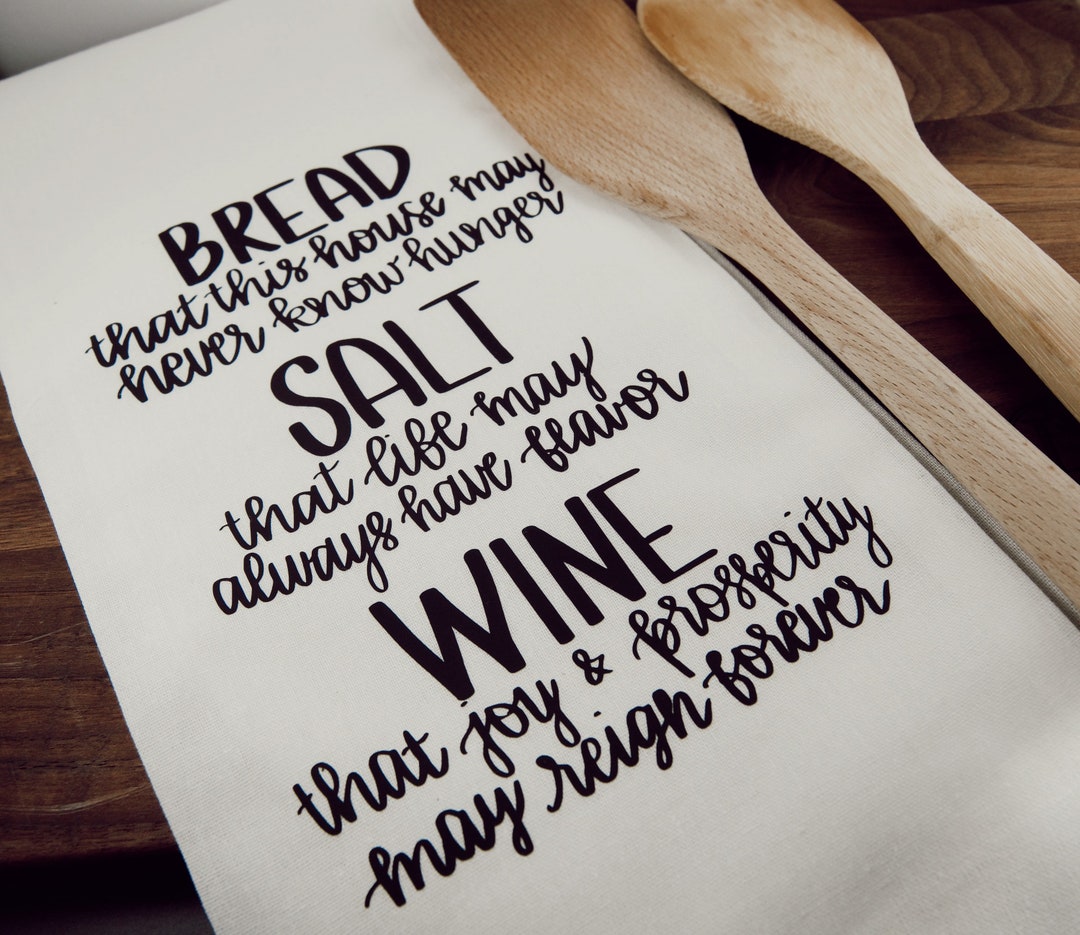 BREAD
that this house may
never know hunger
SALT
that life may
always have flavor
WINE
that joy & prosperity
may reign forever